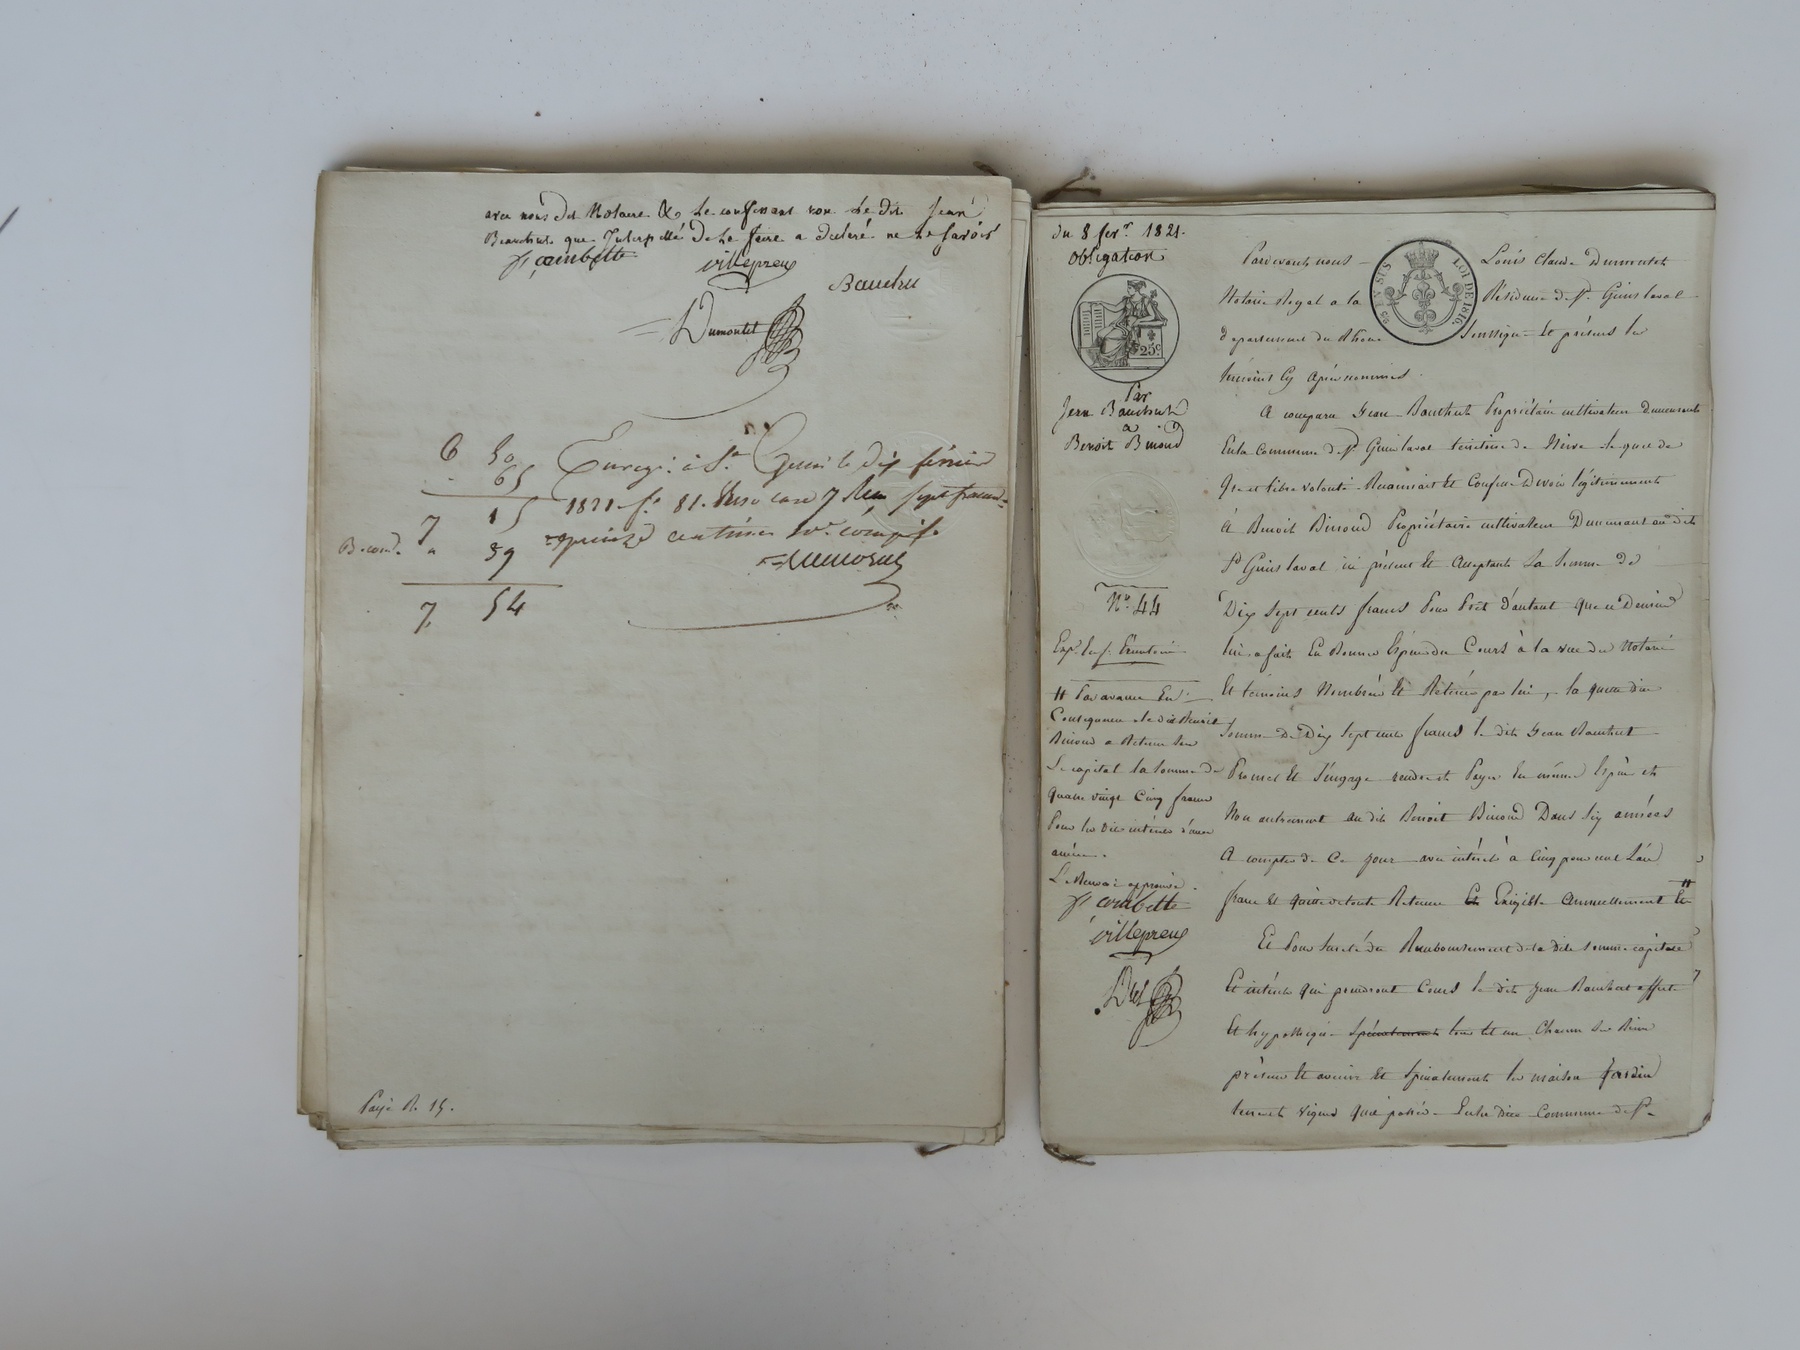 avec nous dit Notaire & le confessant non le dit Jean
Beauchut que Interpellé de le faire a déclaré ne le savoir
combette
villepreux
Bauchu
Dumontet
6 50
65
7 15
39
7, 54
Enreg. à St Genis le dix février
1821 fo 81. Verso case 7 Reçu sept francs
quinze centimes
Payé R. 15.
du 8 fevr. 1821.
Obligation
Par
Jean Bauchut
à
Benoit Binoud
No. 44
25c
EN SUS LOI DE 1816.
# Par avance En
Consequence le dit Benoit
Binoud a Retenu sur
Le capital la somme de
quatre vingt Cinq francs
Pour les dits intérêts d'une
année.
combette
villepreux
Pardevant nous Louis Claude Dumontet
Notaire Royal a la Résidence de St. Genis laval
département du Rhône Soussigné Et présens les
témoins Cy après nommés.
A comparu Jean Bauchut Propriétaire cultivateur demeurant
En la Commune de St. Genis laval territoire de le quel de
Gré et libre volonté Reconnait Et Confesse Devoir légitimement
A Benoit Binoud Propriétaire cultivateur Demeurant au dit
St Genis laval ici présent Et Acceptant La Somme de
Dix sept cents francs Pour Prêt d'autant que ce Dernier
lui a fait En Bonnes Espèces du Cours à la vue du Notaire
Et témoins Nombrée Et Retirée par lui, la quelle dite
Somme De Dix Sept cents francs le dit Jean Bauchut
Promet Et S'engage rendre et Payer En mêmes Espèces et
Non autrement au dit Benoit Binoud Dans Six années
A compter de Ce jour avec intérêts à Cinq pour cent L'an
franc Et quitte de toute Retenue Et Exigible annuellement Et #
Et Pour Sureté du Remboursement de la dite somme capitale
Et intérêts qui prendront Cours le dit Jean Bauchut affecte
Et hypothèque Spécialement tous Et un Chacun Ses Biens
présens Et avenirs Et Spécialement les maison Jardin
terre et vignes qu'il possède En la dite Commune de St.